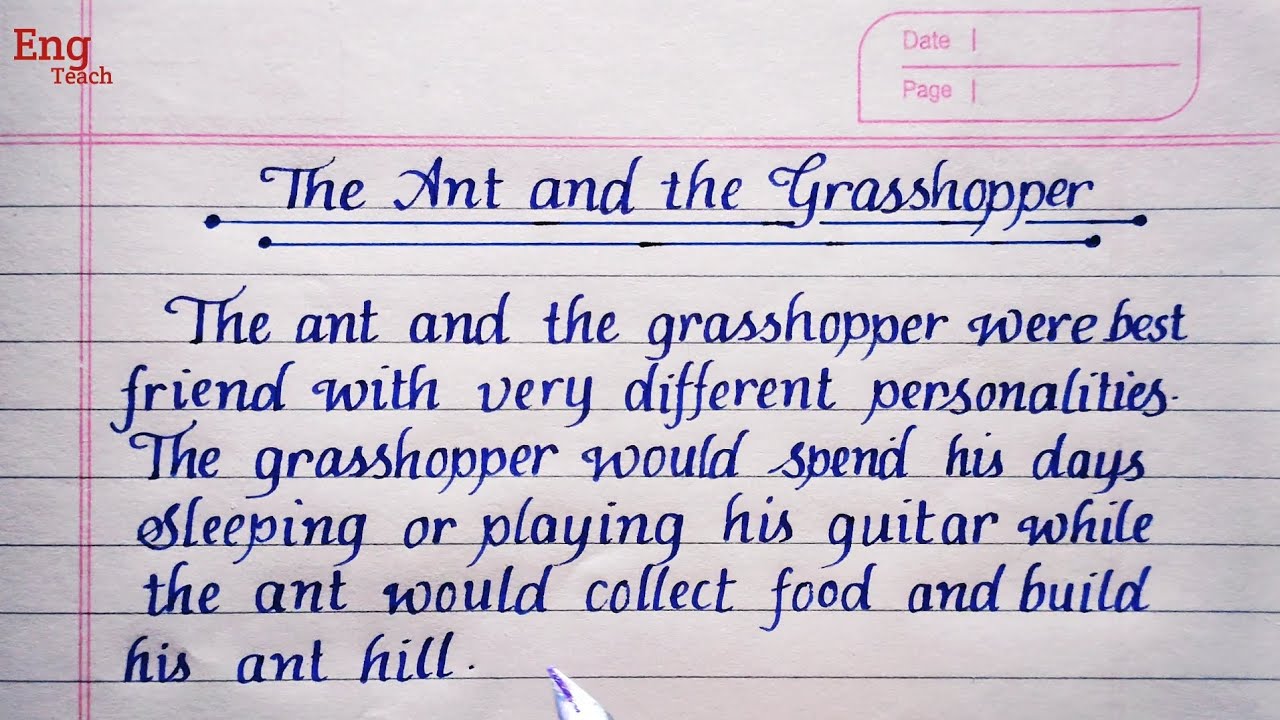 Eng
Teach
Date
Page
The Ant and the Grasshopper
The ant and the grasshopper were best
friend with very different personalities.
The grasshopper would spend his days
sleeping or playing his guitar while
the ant would collect food and build
his ant hill.